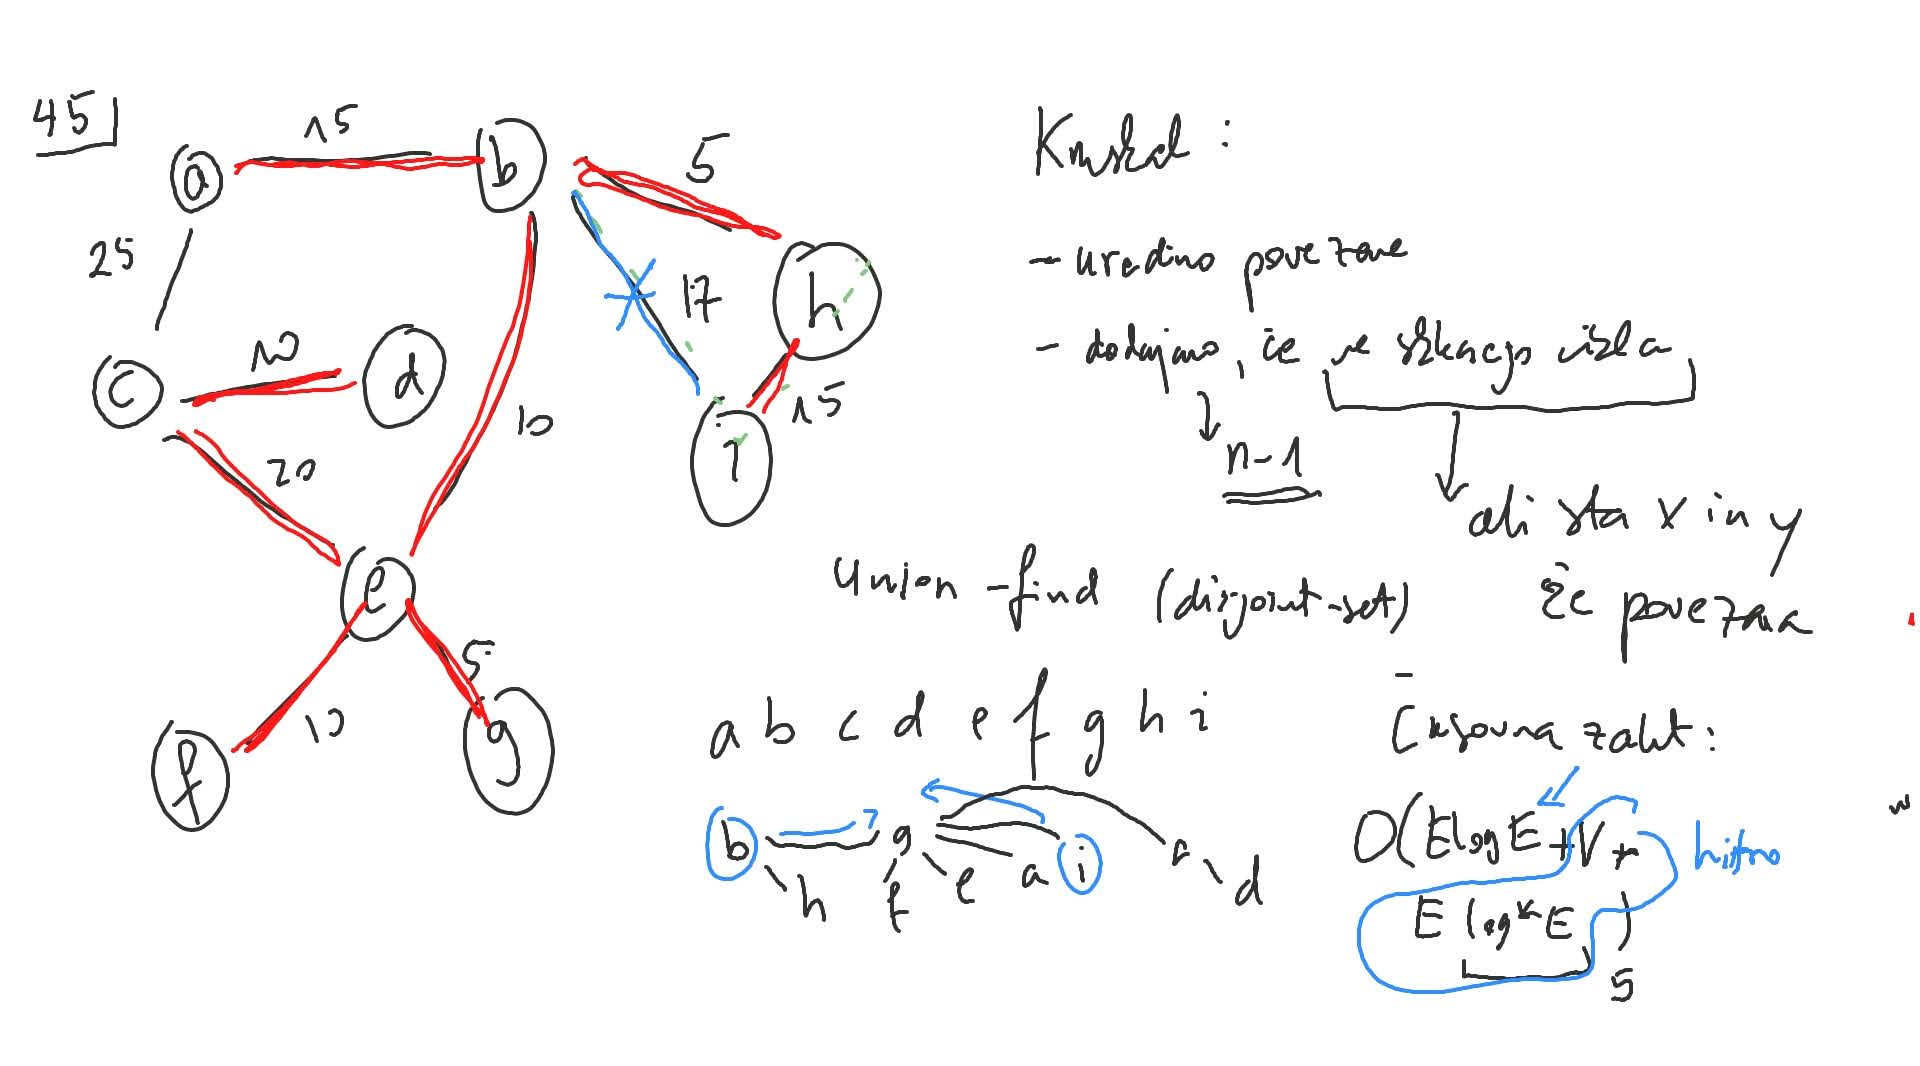 45
15
a
b
5
25
h
17
10
c
d
15
i
20
10
e
5
10
f
g
Kruskal :
- uredimo povezave
- dodajamo, če ne sklenejo cikla
n-1
ali sta x in y
že povezana
Union-find (disjoint-set)
a b c d e f g h i
b g a i c d
h f e
Časovna zaht:
O(E log E + V +
E log* E )
5
hitro